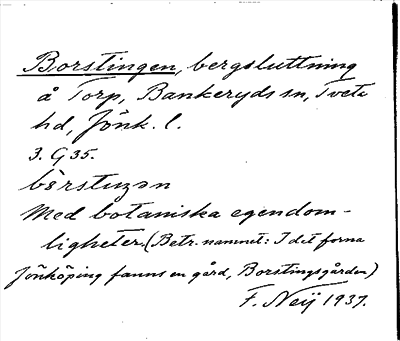 Borstingen, bergsluttning
å Torp, Bankeryds sn, Tveta
hd, Jönk. l.
3. G 35.
bèrstuŋən
Med botaniska egendom-
ligheter. (Betr. namnet: I det forna
Jönköping fanns en gård, Borstingsgården)
F. Neij 1937.